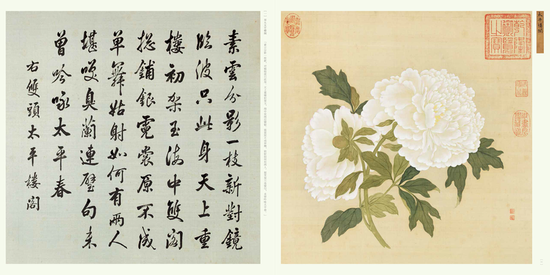 素雲分影一枝新對鏡
臨波只此身天上重
樓初架玉海中雙閣
總鋪銀霓裳原不成
單舞姑射如何有兩人
堪咲臭蘭連璧句未
曾吟咏太平春
右雙頭太平樓閣